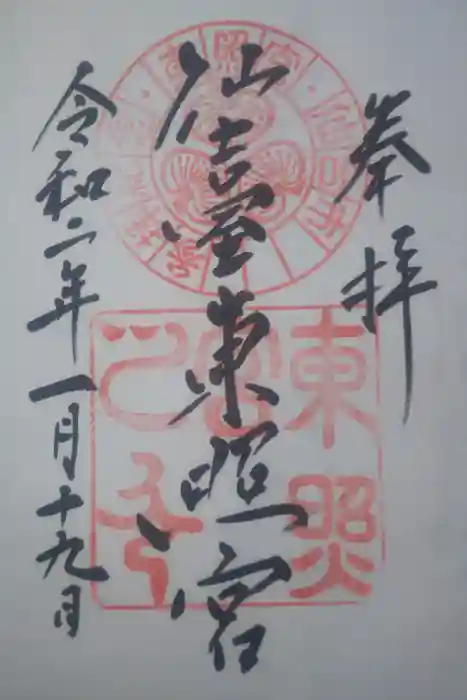 奉拝
仙臺東照宮
令和二年一月十九日
東照
宮